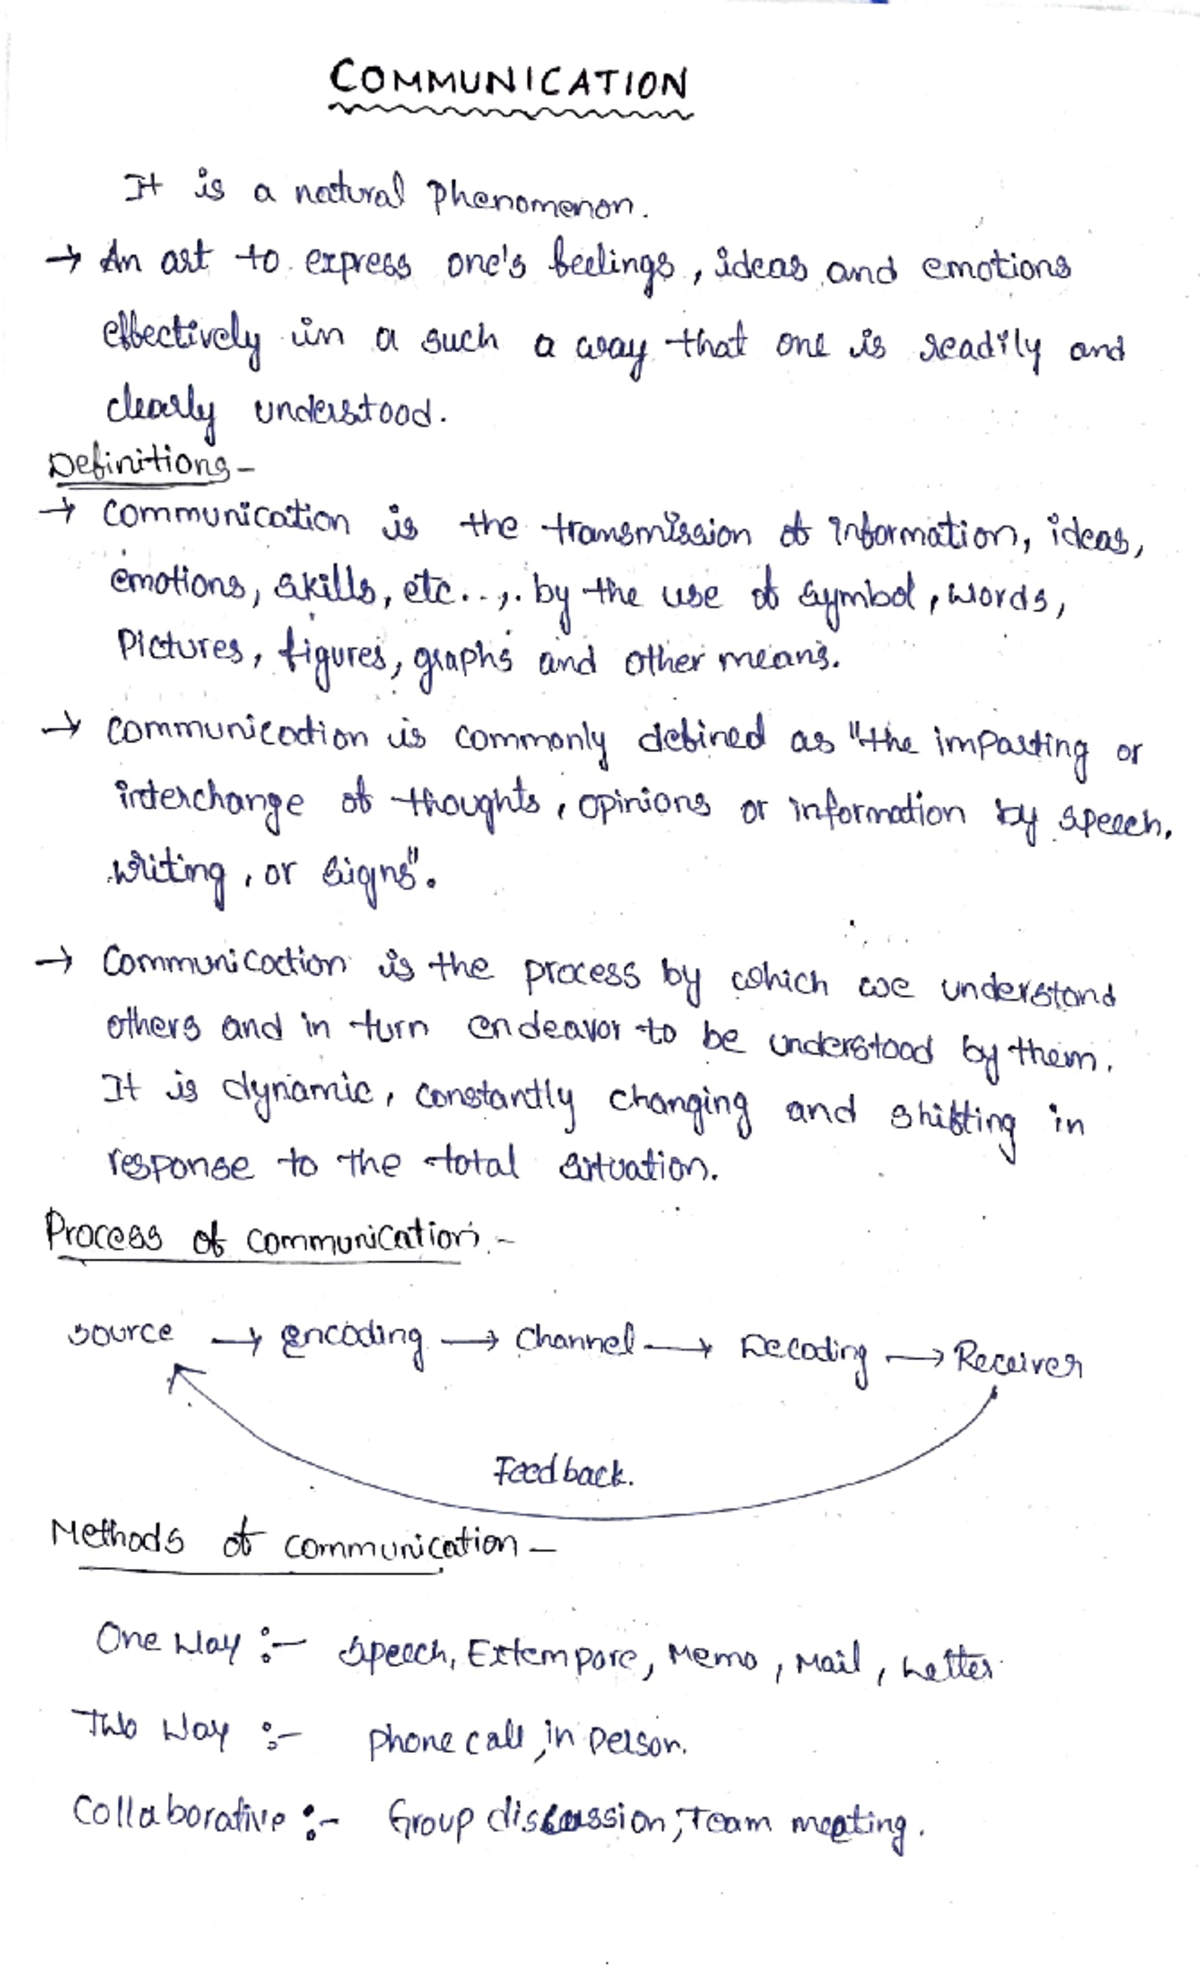 COMMUNICATION
It is a natural phenomenon.
→ An art to express one's feelings, ideas and emotions
effectively in a such a way that one is readily and
clearly understood.
Definitions -
→ Communication is the transmission of information, ideas,
emotions, skills, etc..,. by the use of symbol, words,
Pictures, figures, graphs and other means.
→ Communication is commonly defined as "the imparting or
interchange of thoughts, opinions or information by speech,
writing, or signs".
→ Communication is the process by which we understand
others and in turn endeavor to be understood by them.
It is dynamic, constantly changing and shifting in
response to the total situation.
Process of communication. -
source → encoding → Channel → Decoding → Receiver
Feedback.
Methods of communication -
One Way :- Speech, Extempore, Memo, Mail, Letter.
Two Way :- phone call, in person.
Collaborative :- Group discussion, Team meeting.